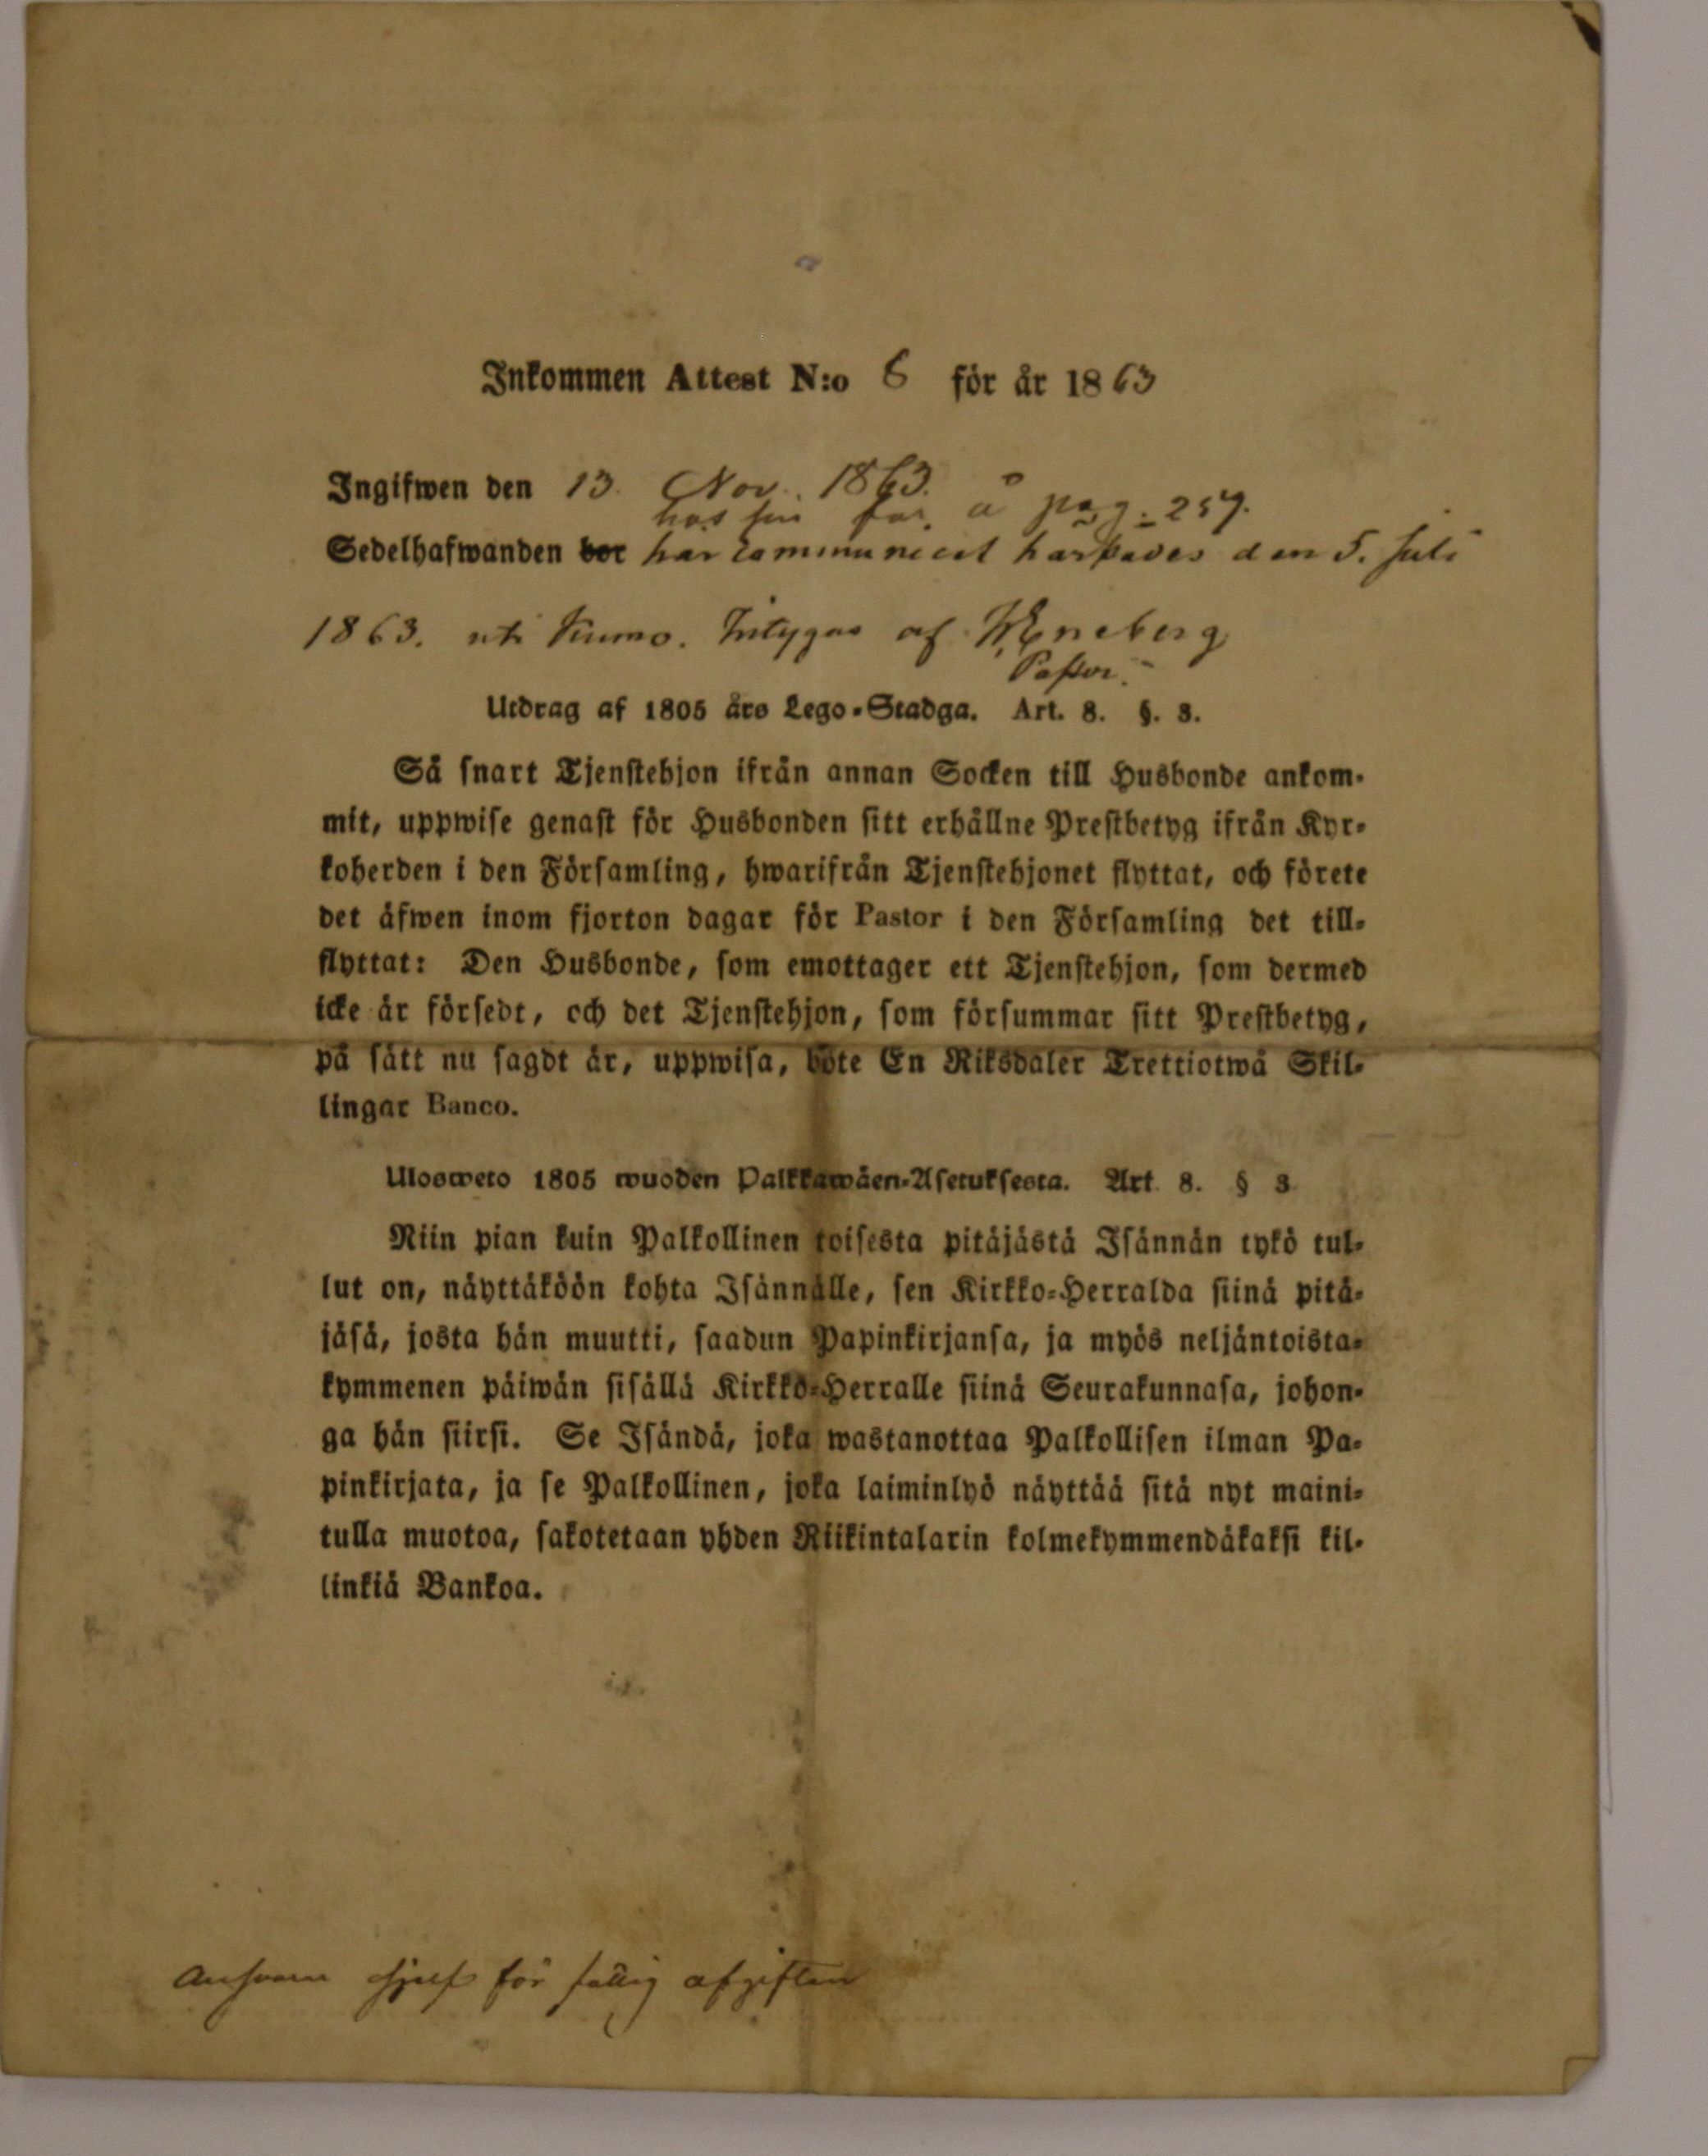 Inkommen Attest N:o 6 för år 1863
Ingifwen den 13. Nov. 1863.
hos sin far. å pag. 257.
Sedelhafwanden bor har communicerat härstädes den 5. Juli
1863. uti Kumo. Intygas af Eneberg
Pastor.
Utdrag af 1805 års Lego-Stadga. Art. 8. §. 3.
Så snart Tjenstehjon ifrån annan Socken till Husbonde ankom-
mit, uppwise genast för Husbonden sitt erhållne Prestbetyg ifrån Kyr-
koherden i den Församling, hwarifrån Tjenstehjonet flyttat, och förete
det äfwen inom fjorton dagar för Pastor i den Församling det till-
flyttat: Den Husbonde, som emottager ett Tjenstehjon, som dermed
icke är försedt, och det Tjenstehjon, som försummar sitt Prestbetyg,
på sätt nu sagdt är, uppwisa, böte En Riksdaler Trettiotwå Skil-
lingar Banco.
Ulosweto 1805 wuoden Palkkawäen-Asetuksesta. Art. 8. § 3
Niin pian kuin Palkollinen toisesta pitäjästä Isännän tykö tul-
lut on, näyttäköön kohta Isännälle, sen Kirkko-Herralda siinä pitä-
jäsä, josta hän muutti, saadun Papinkirjansa, ja myös neljäntoista-
kymmenen päiwän sisällä Kirkko-Herralle siinä Seurakunnasa, johon-
ga hän siirsi. Se Isändä, joka wastanottaa Palkollisen ilman Pa-
pinkirjata, ja se Palkollinen, joka laiminlyö näyttää sitä nyt maini-
tulla muotoa, sakotetaan yhden Riikintalarin kolmekymmendäkaksi kil-
linkiä Bankoa.
Ansvarar sjelf för fattig afgiften